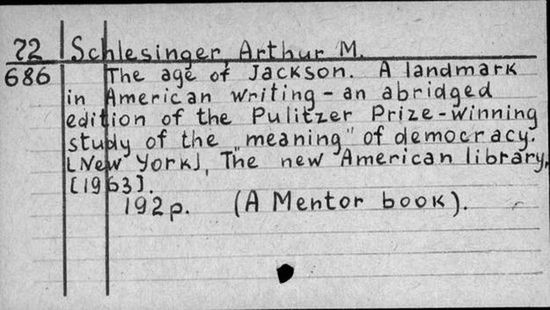 72 Schlesinger, Arthur M.
686 The age of Jackson. A landmark
in American writing - an abridged
edition of the Pulitzer Prize-winning
study of the „meaning" of democracy.
[New York], The new American library,
[1963].
192 p. (A Mentor book).